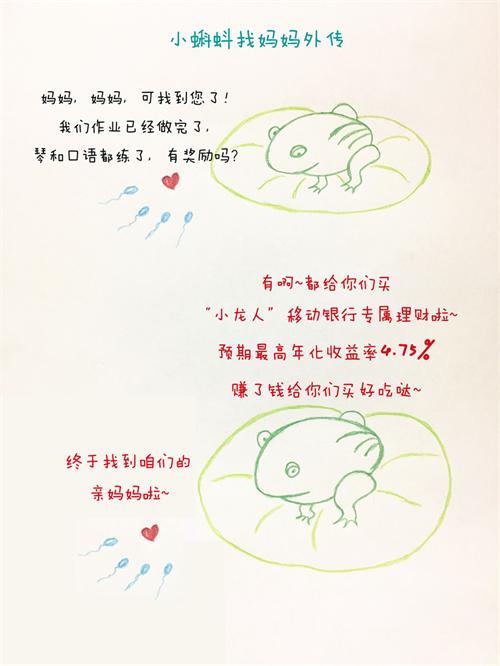 小蝌蚪找妈妈外传
妈妈，妈妈，可找到您了！
我们作业已经做完了，
琴和口语都练了，有奖励吗？
有啊~都给你们买
“小龙人”移动银行专属理财啦~
预期最高年化收益率4.75%
赚了钱给你们买好吃哒~
终于找到咱们的
亲妈妈啦~